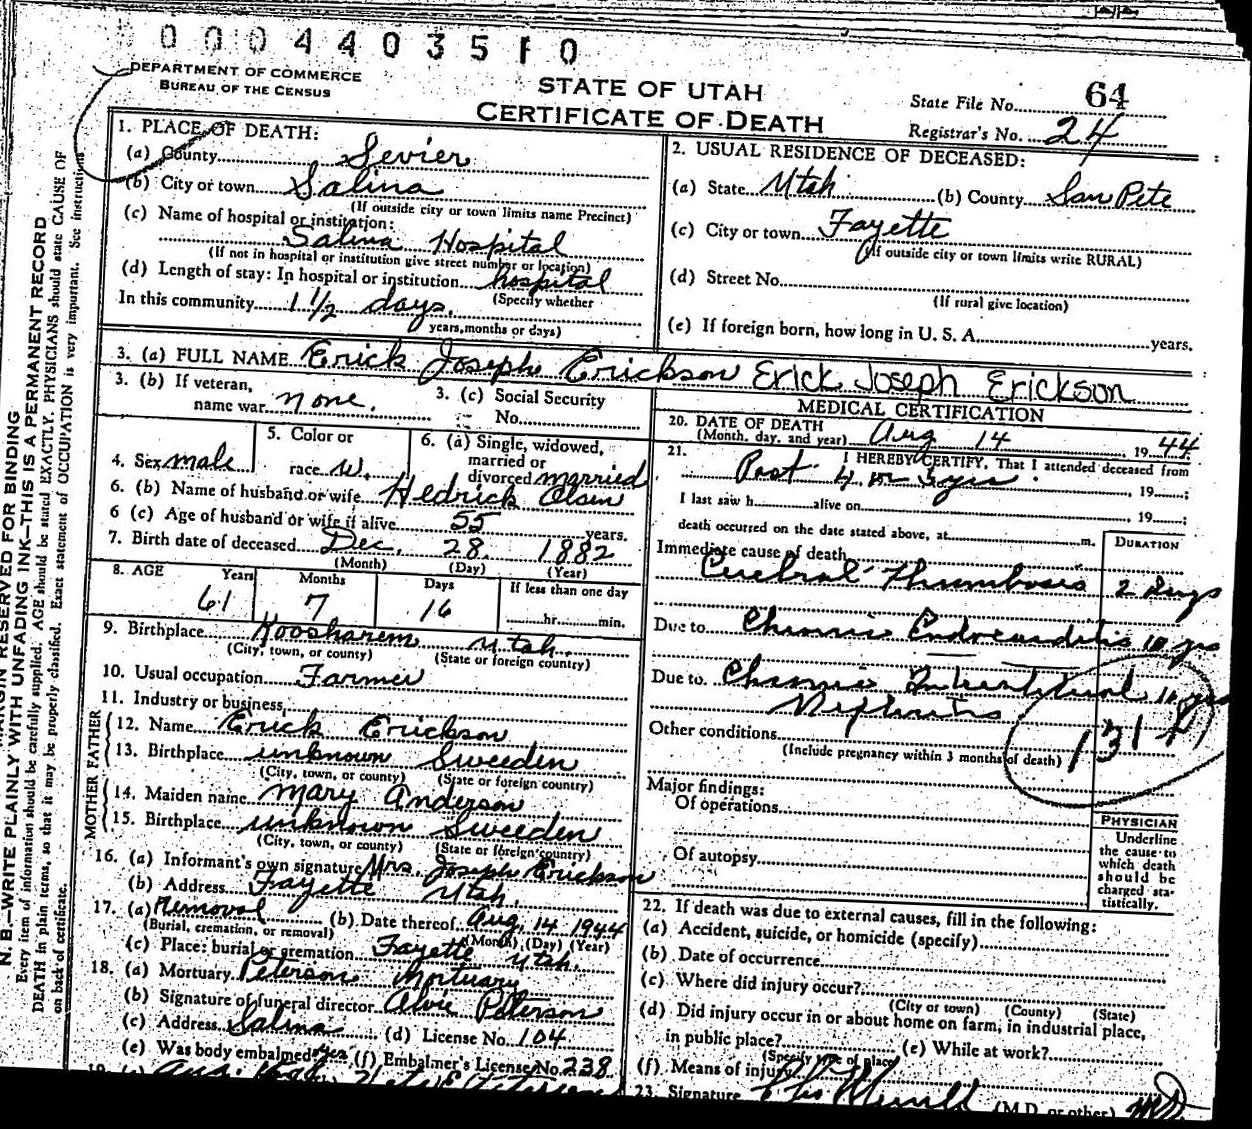 00044035F0
DEPARTMENT OF COMMERCE
BUREAU OF THE CENSUS
STATE OF UTAH
CERTIFICATE OF DEATH
State File No. 64
Registrar's No. 24
N. B.—WRITE PLAINLY WITH UNFADING INK—THIS IS A PERMANENT RECORD
MARGIN RESERVED FOR BINDING
Every item of information should be carefully supplied. AGE should be stated EXACTLY. PHYSICIANS should state CAUSE OF
DEATH in plain terms, so that it may be properly classified. Exact statement of OCCUPATION is very important. See instructions
on back of certificate.
1. PLACE OF DEATH:
(a) County Sevier
(b) City or town Salina
(If outside city or town limits name Precinct)
(c) Name of hospital or institution:
Salina Hospital
(If not in hospital or institution give street number or location)
(d) Length of stay: In hospital or institution hospital
(Specify whether
In this community 1 1/2 days.
years, months or days)
2. USUAL RESIDENCE OF DECEASED:
(a) State Utah (b) County San Pete
(c) City or town Fayette
(If outside city or town limits write RURAL)
(d) Street No.
(If rural give location)
(e) If foreign born, how long in U. S. A. years.
3. (a) FULL NAME Erick Joseph Erickson Erick Joseph Erickson
3. (b) If veteran,
name war none.
3. (c) Social Security
No.
4. Sex male
5. Color or
race W.
6. (a) Single, widowed,
married or
divorced married
6. (b) Name of husband or wife Hedrick Olsen
6 (c) Age of husband or wife if alive 55 years.
7. Birth date of deceased Dec. 28. 1882
(Month) (Day) (Year)
8. AGE Years Months Days If less than one day
61 7 16 hr. min.
9. Birthplace Koosharem Utah.
(City, town, or county) (State or foreign country)
10. Usual occupation Farmer
11. Industry or business
FATHER
12. Name Erick Erickson
13. Birthplace unknown Sweeden
(City, town, or county) (State or foreign country)
MOTHER
14. Maiden name Mary Anderson
15. Birthplace unknown Sweeden
(City, town, or county) (State or foreign country)
16. (a) Informant's own signature Mrs. Joseph Erickson
(b) Address Fayette Utah.
17. (a) Removal (b) Date thereof Aug. 14 1944
(Burial, cremation, or removal) (Month) (Day) (Year)
(c) Place: burial or cremation Fayette Utah.
18. (a) Mortuary Peterson Mortuary
(b) Signature of funeral director Alvie Peterson
(c) Address Salina (d) License No. 104
(e) Was body embalmed yes (f) Embalmer's License No. 238
MEDICAL CERTIFICATION
20. DATE OF DEATH
(Month, day, and year) Aug 14 , 19 44
21. I HEREBY CERTIFY, That I attended deceased from
Past 4 or 5 yrs. , 19 ;
I last saw h alive on , 19 ;
death occurred on the date stated above, at m.
DURATION
Immediate cause of death
Cerebral Thrombosis 2 days
Due to Chronic Endocarditis 10 yrs
Due to Chronic Interstitial 10 yrs
Nephritis
131
Other conditions
(Include pregnancy within 3 months of death)
Major findings:
Of operations
Of autopsy
PHYSICIAN
Underline
the cause to
which death
should be
charged sta-
tistically.
22. If death was due to external causes, fill in the following:
(a) Accident, suicide, or homicide (specify)
(b) Date of occurrence
(c) Where did injury occur?
(City or town) (County) (State)
(d) Did injury occur in or about home on farm, in industrial place,
in public place? (e) While at work?
(Specify type of place)
(f) Means of injury
23. Signature (M.D. or other) MD.